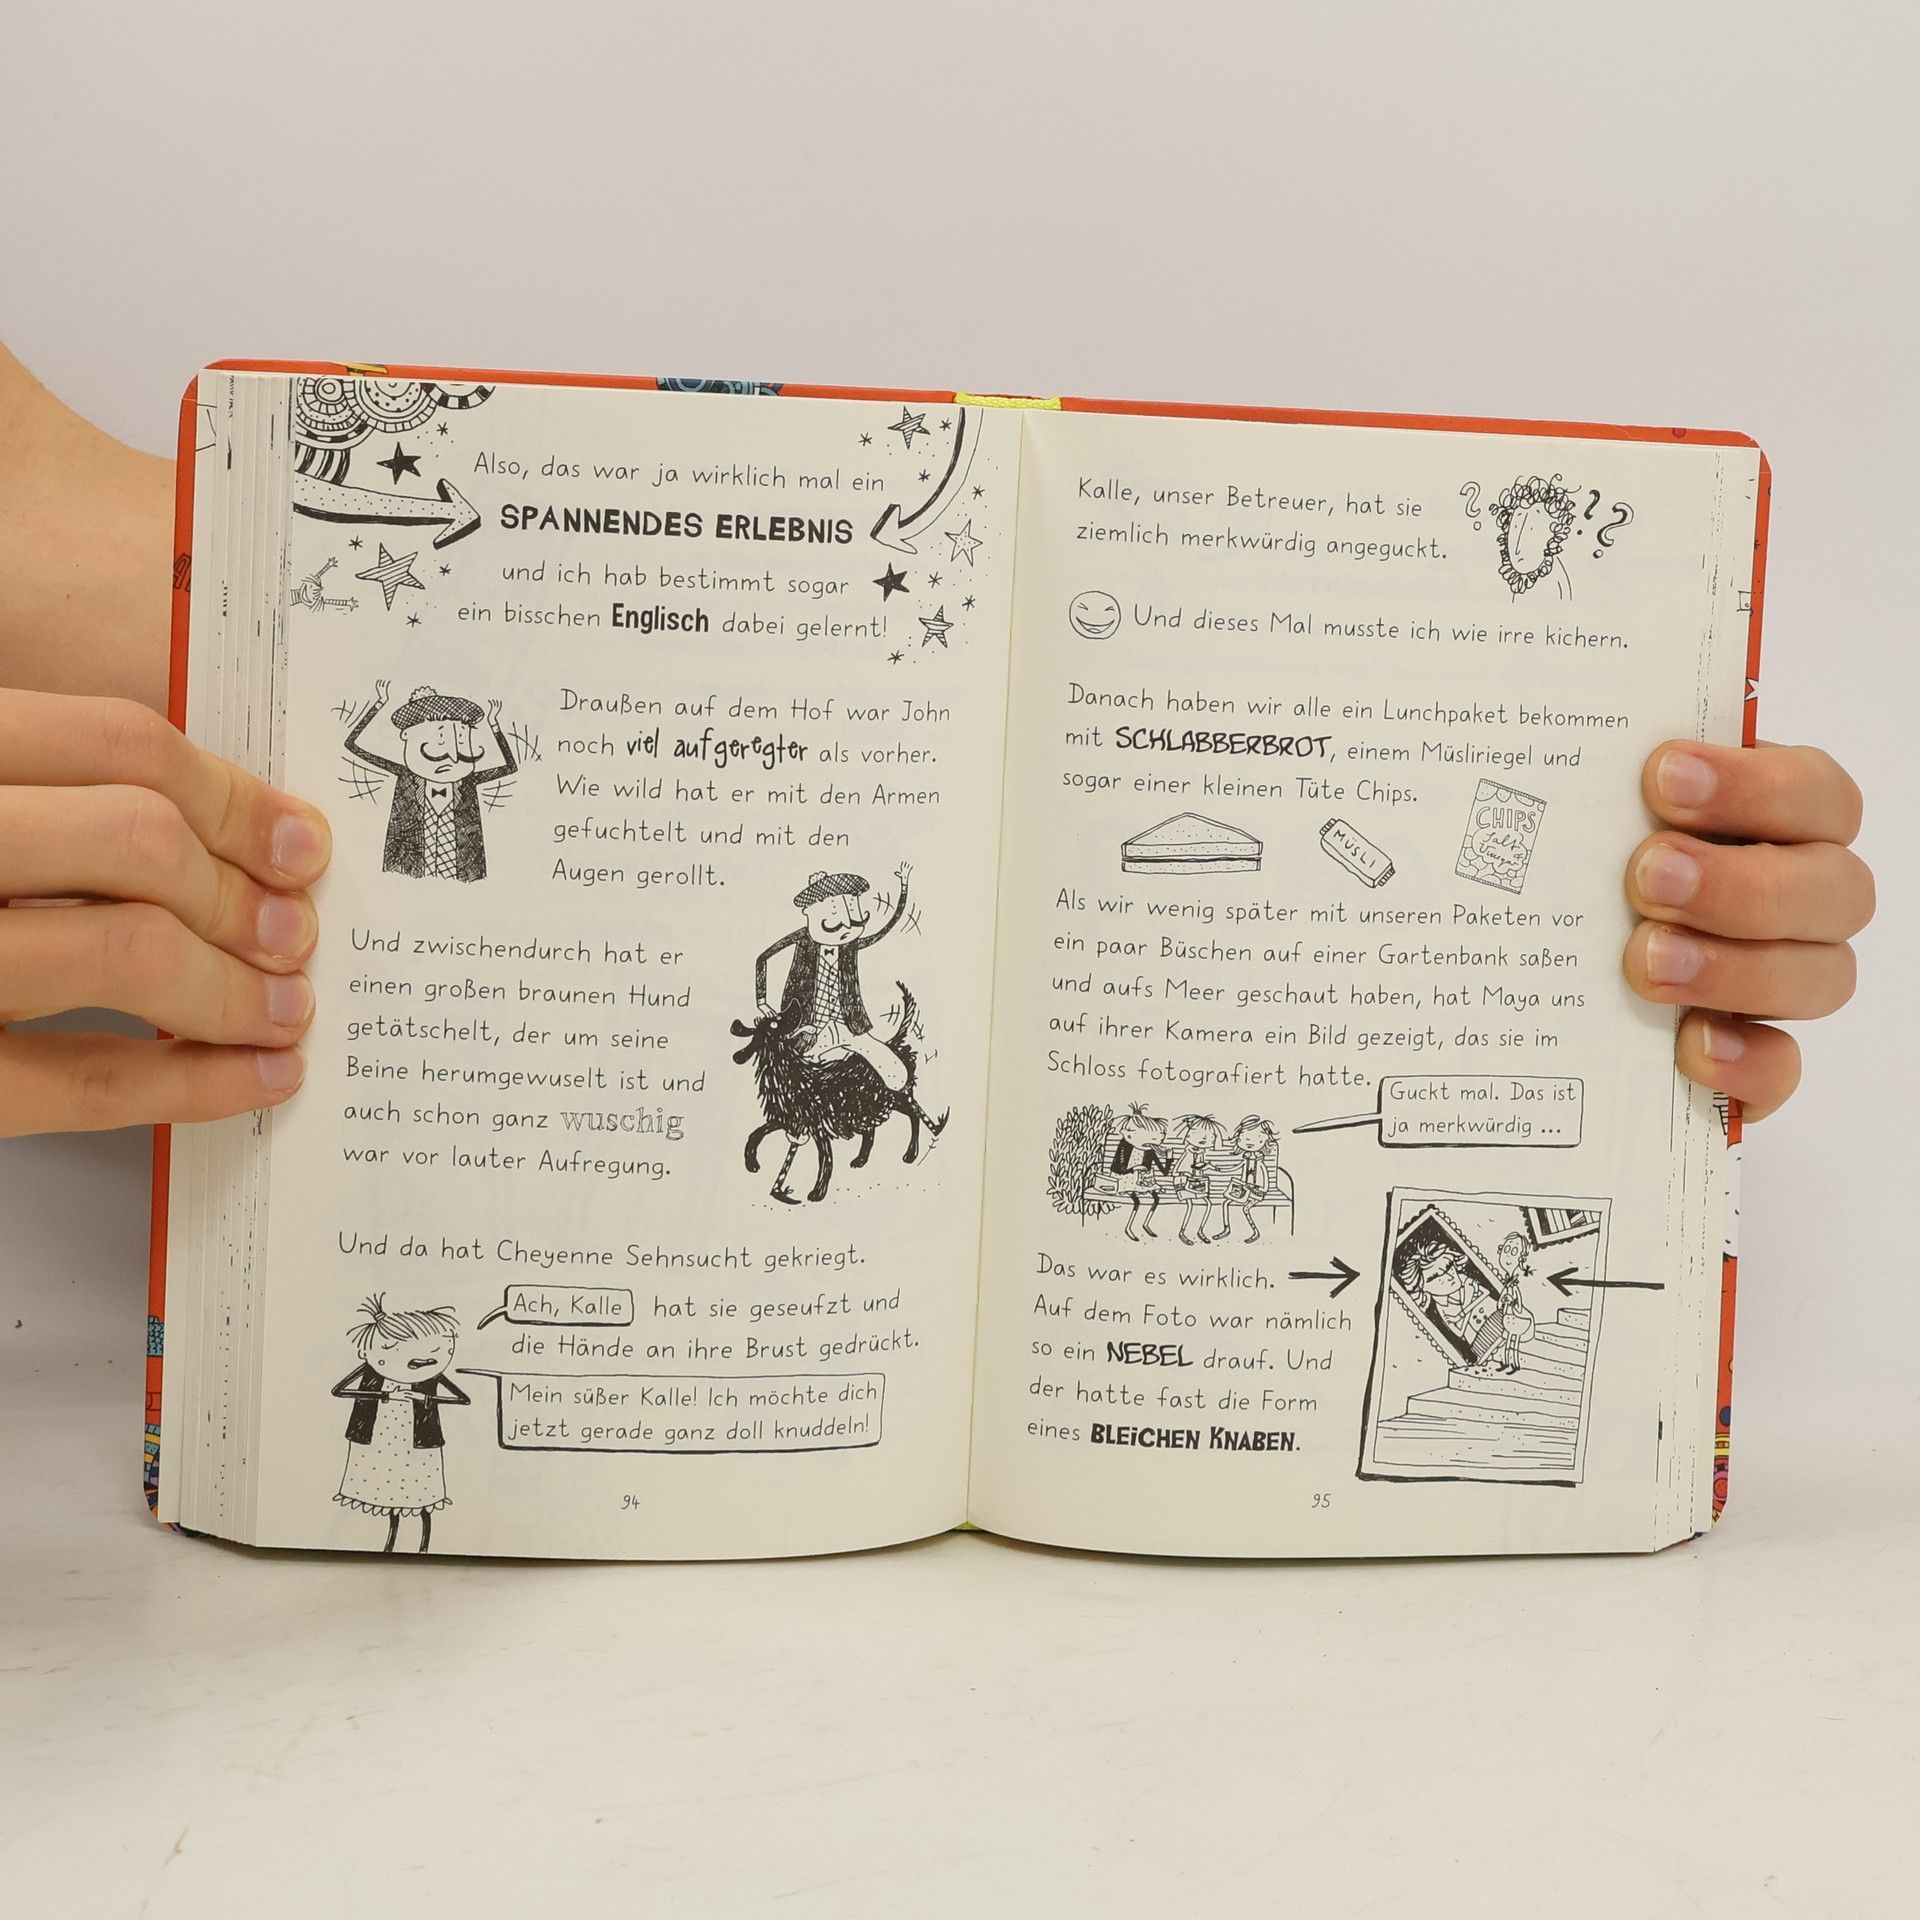 Also, das war ja wirklich mal ein
SPANNENDES ERLEBNIS
und ich hab bestimmt sogar
ein bisschen Englisch dabei gelernt!
Draußen auf dem Hof war John
noch viel aufgeregter als vorher.
Wie wild hat er mit den Armen
gefuchtelt und mit den
Augen gerollt.
Und zwischendurch hat er
einen großen braunen Hund
getätschelt, der um seine
Beine herumgewuselt ist und
auch schon ganz wuschig
war vor lauter Aufregung.
Und da hat Cheyenne Sehnsucht gekriegt.
Ach, Kalle hat sie geseufzt und
die Hände an ihre Brust gedrückt.
Mein süßer Kalle! Ich möchte dich
jetzt gerade ganz doll knuddeln!
94
Kalle, unser Betreuer, hat sie
ziemlich merkwürdig angeguckt.
? ? ?
Und dieses Mal musste ich wie irre kichern.
Danach haben wir alle ein Lunchpaket bekommen
mit SCHLABBERBROT, einem Müsliriegel und
sogar einer kleinen Tüte Chips.
MÜSLI
CHIPS
Salt &
Vinegar
Als wir wenig später mit unseren Paketen vor
ein paar Büschen auf einer Gartenbank saßen
und aufs Meer geschaut haben, hat Maya uns
auf ihrer Kamera ein Bild gezeigt, das sie im
Schloss fotografiert hatte.
Guckt mal. Das ist
ja merkwürdig ...
Das war es wirklich.
Auf dem Foto war nämlich
so ein NEBEL drauf. Und
der hatte fast die Form
eines BLEICHEN KNABEN.
95